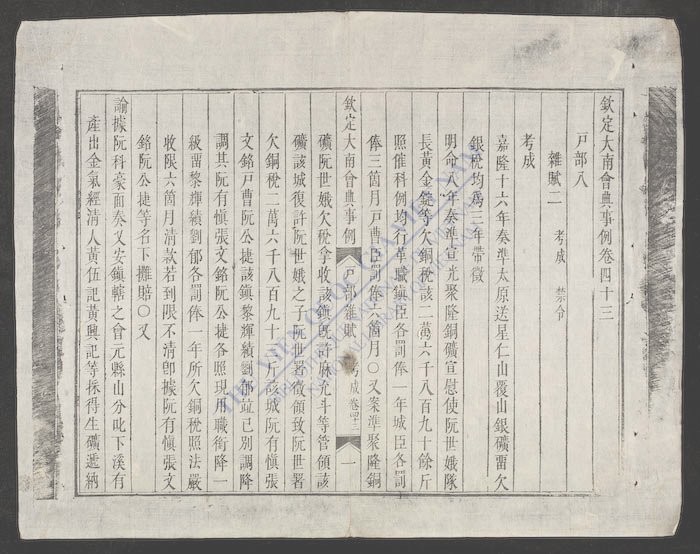 欽定大南會典事例卷四十三
戶部八
雜賦二 考成 禁令
考成
嘉隆十六年奏準太原送星仁山覆山銀礦畱欠
銀稅均爲三年帶徵
明命八年奏準宣光聚隆銅礦宣慰使阮世娥隊
長黃金鋌等欠銅稅該二萬六千八百九十餘斤
照催科例均行革職鎭臣各罰俸一年城臣各罰
俸三箇月戶曹臣罰俸六箇月〇又案準聚隆銅
欽定大南會典事例 戶部雜賦 考成 卷四十三 一
礦阮世娥欠稅拿收該鎭旣許麻允斗等管領該
礦該城復許阮世娥之子阮世署徵領致阮世署
欠銅稅二萬六千八百九十二斤該城阮有愼張
文銘戶曹阮公捷該鎭黎輝績劉郁竝已別調降
調其阮有愼張文銘阮公捷各照現用職銜降一
級畱黎輝績劉郁各罰俸一年所欠銅稅照法嚴
收限六箇月淸款若到限不淸卽據阮有愼張文
銘阮公捷等名下攤賠〇又
諭據阮科豪面奏乂安鎭轄之會元縣山分叱下溪有
產出金氣經淸人黃伍記黃興記等採得生礦遞納
THE VIETNAMESE NÔM